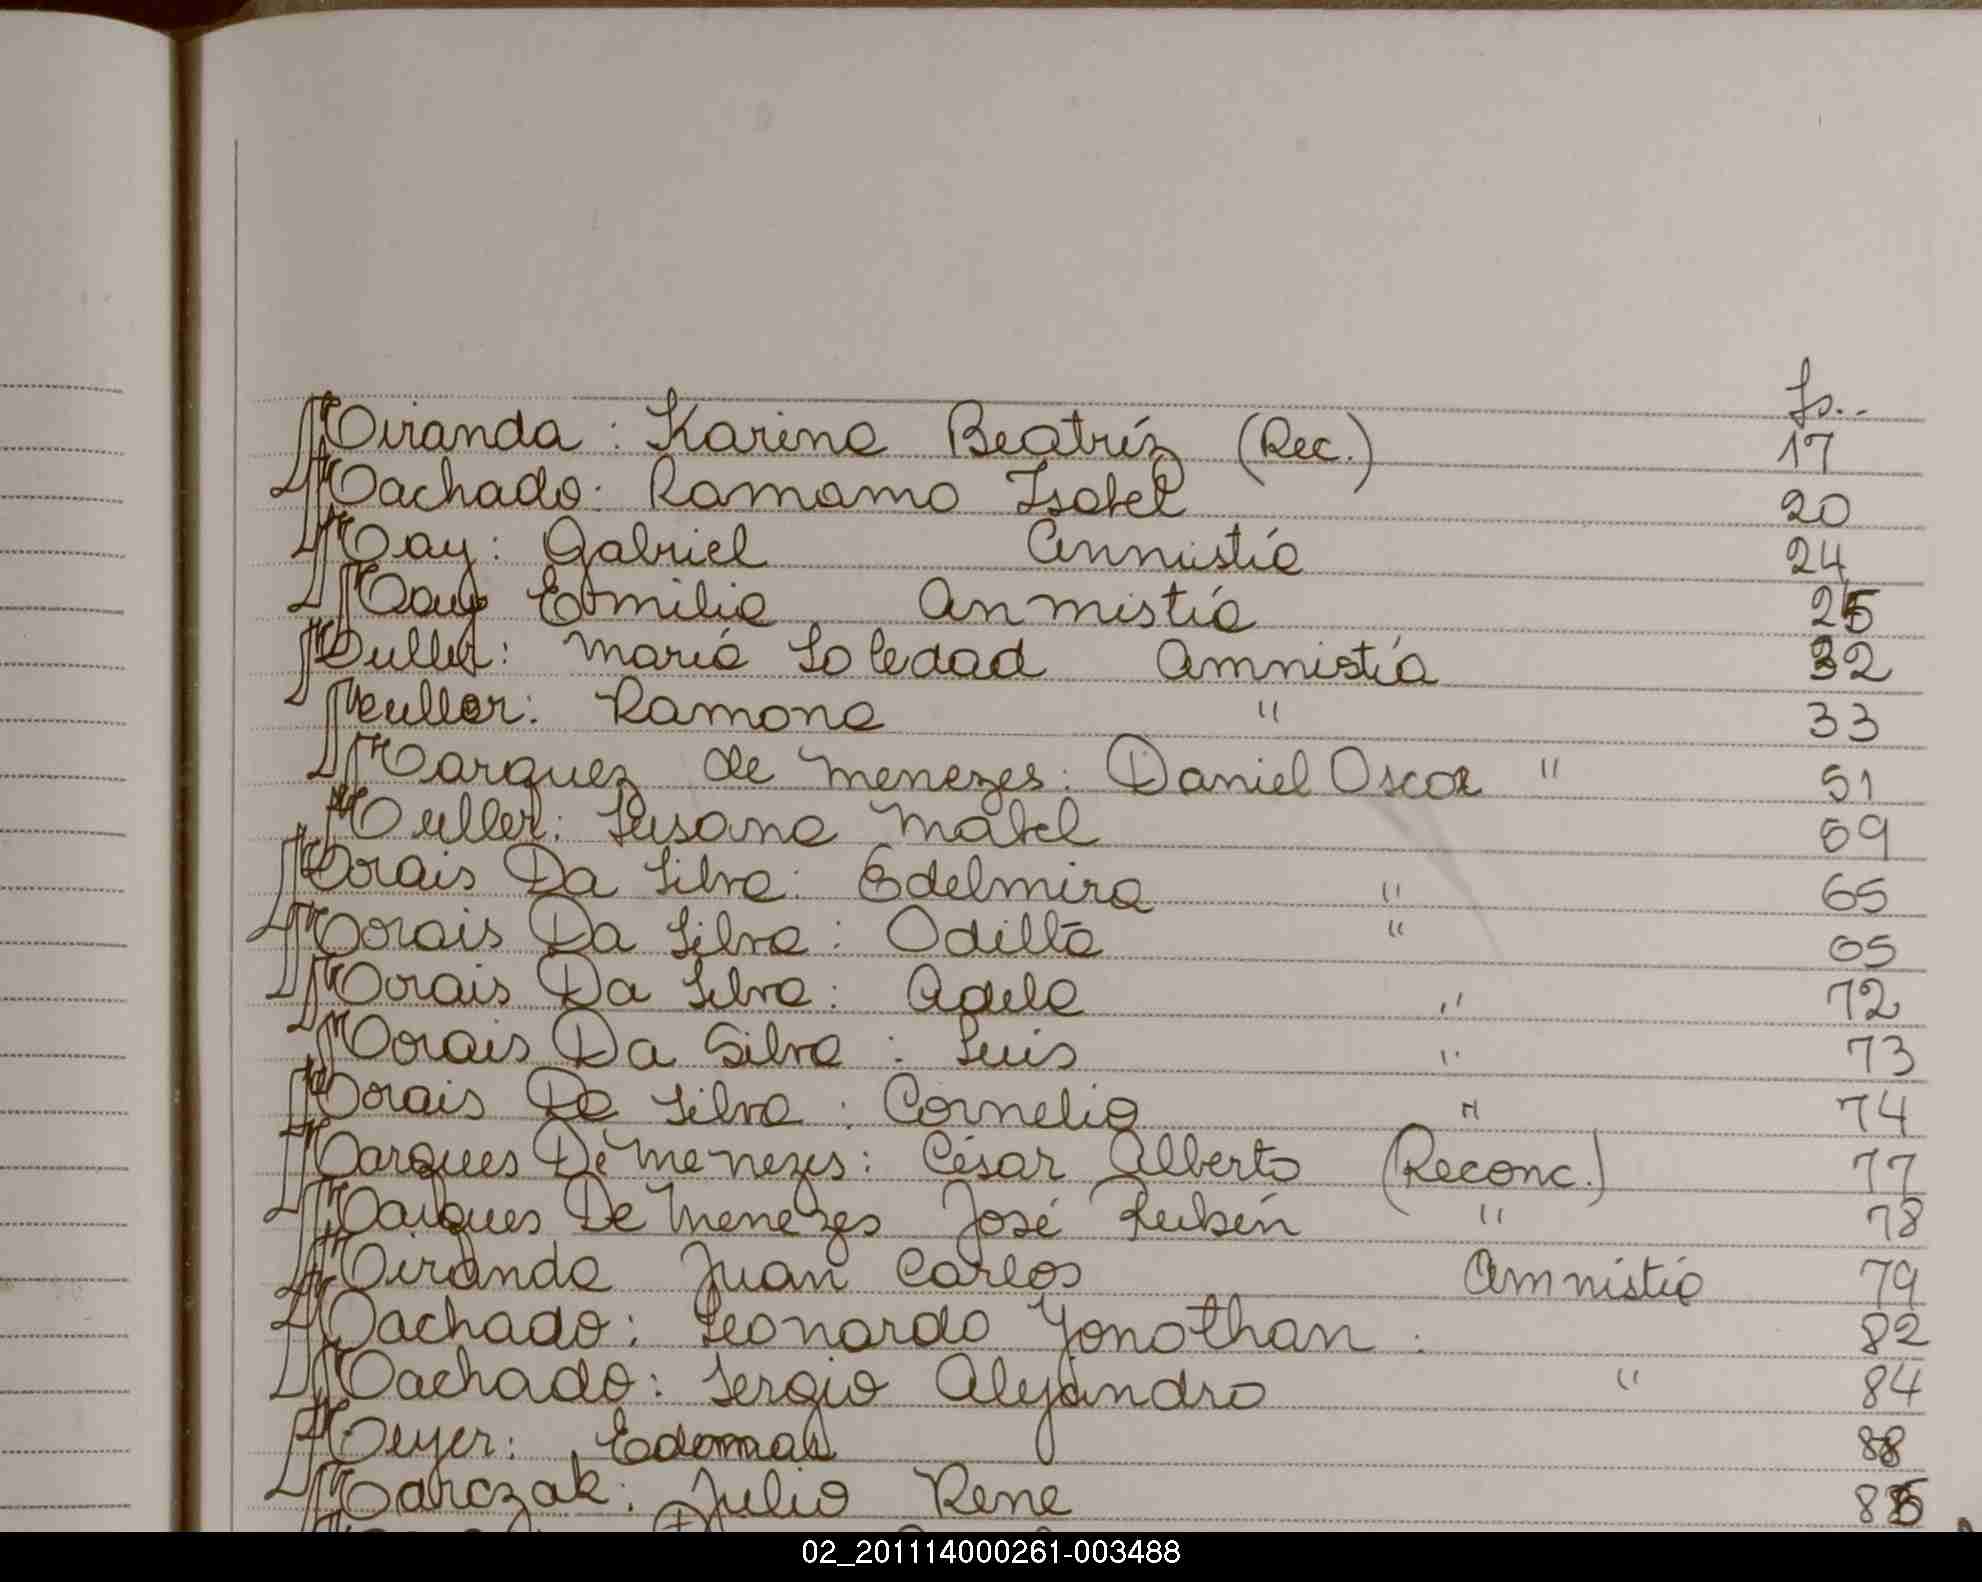 fs..
Miranda : Karina Beatríz (Rec.) 17
Machado: Ramona Isabel 20
May: Gabriel Amnistía 24
May Emilia Anmistía 25
Muller: María Soledad Amnistía 32
Muller: Ramona " 33
Marquez de Menezes: Daniel Oscar " 51
Muller: Susana Mabel 69
Morais Da Silva: Edelmira " 65
Morais Da Silva: Odilla " 65
Morais Da Silva: Adela " 72
Morais Da Silva : Luis " 73
Morais Da Silva : Cornelio " 74
Marques De Menezes: César Alberto (Reconc.) 77
Marques De Menezes José Rubén " 78
Miranda Juan Carlos Amnistía 79
Machado: Leonardo Yonothan. 82
Machado: Sergio Alejandro " 84
Meyer: 88
Marczak: Julio Rene
02_201114000261-003488